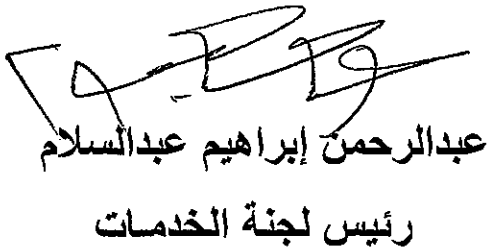 عبدالرحمن إبراهيم عبدالسلام
رئيس لجنة الخدمات